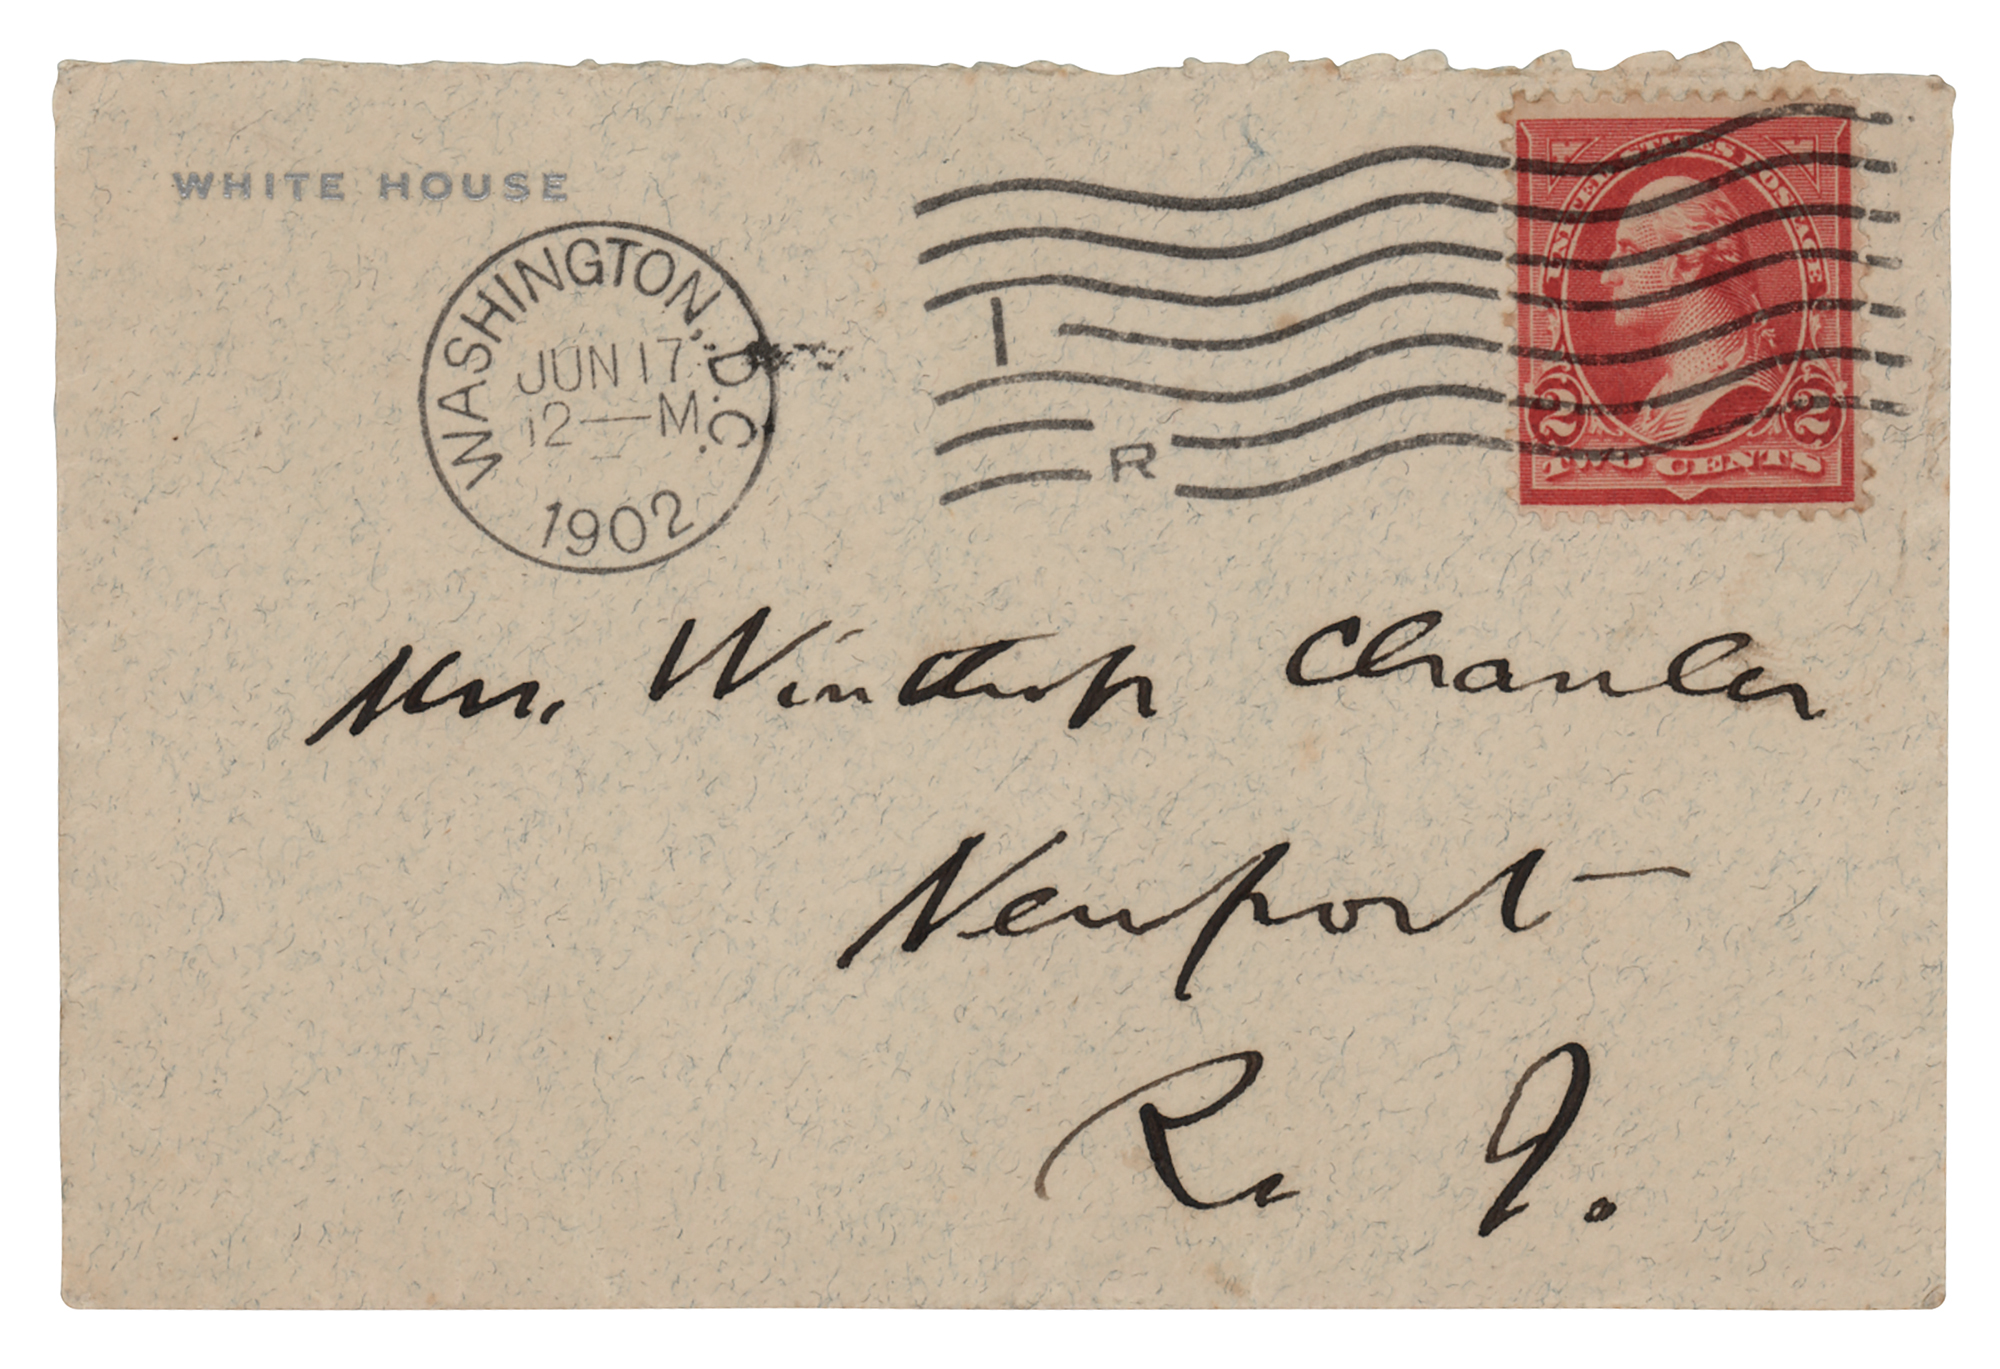 WHITE HOUSE
WASHINGTON, D.C.
JUN 17
12—M.
1902
1
R
UNITED STATES POSTAGE
2 2
TWO CENTS
Mrs. Winthrop Chanler
Newport
R. I.